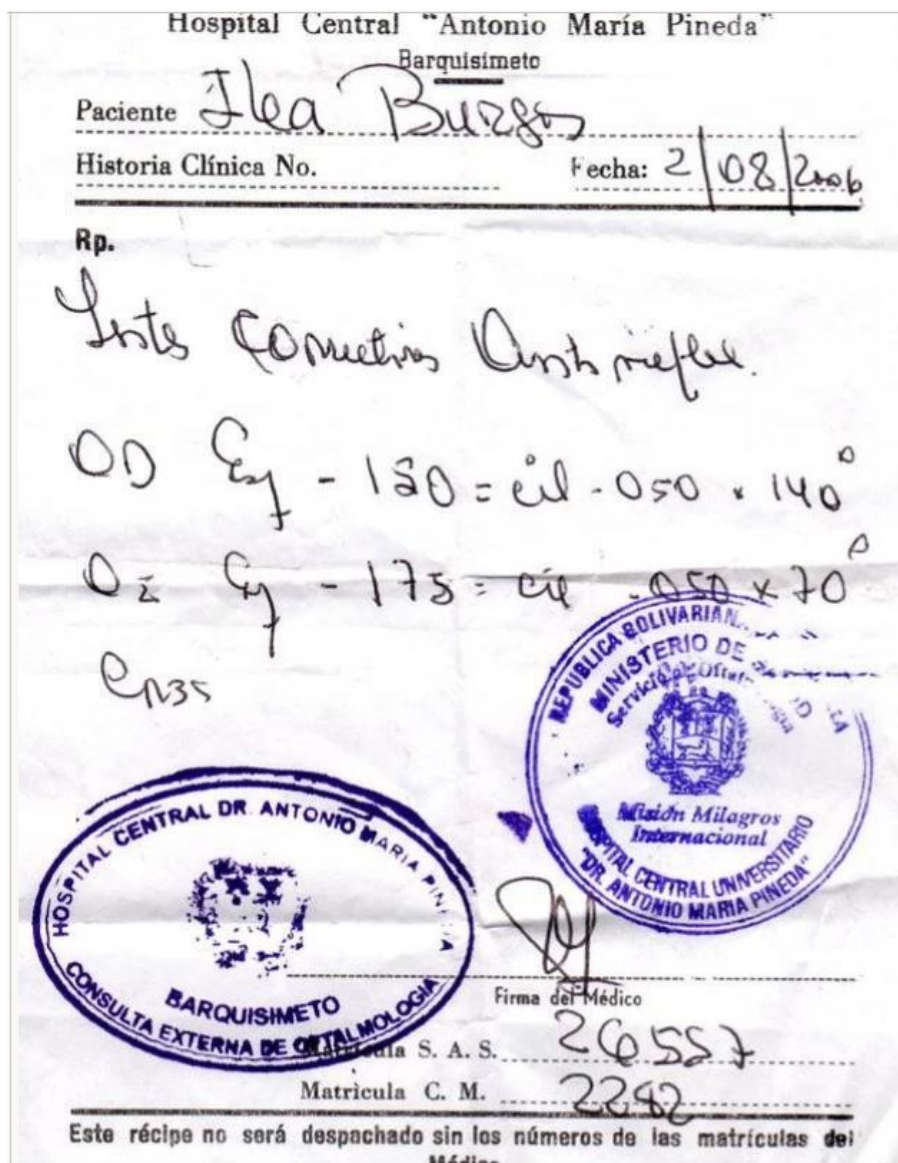 Hospital Central "Antonio María Pineda"
Barquisimeto
Paciente Ilea Burgos
Historia Clínica No. Fecha: 2/08/2006
Rp.
Lentes Correctivos Antireflex.
OD Esf - 150 = cil - 050 x 140°
Oz Esf - 175 = cil - 050 x 70°
REPUBLICA BOLIVARIAN
MINISTERIO DE
Servicio de Oftalmologia
Misión Milagros
Internacional
HOSPITAL CENTRAL UNIVERSITARIO
"DR. ANTONIO MARIA PINEDA"
HOSPITAL CENTRAL DR. ANTONIO MARIA PINEDA
BARQUISIMETO
CONSULTA EXTERNA DE OFTALMOLOGIA
Firma del Médico
Matrícula S. A. S. 26557
Matrìcula C. M. 2282
Este récipe no será despachado sin los números de las matrículas del
Médico